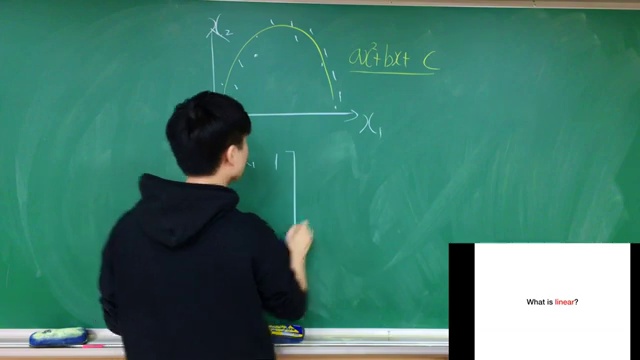 x₂
ax²+bx+ c
x₁
1
What is linear?